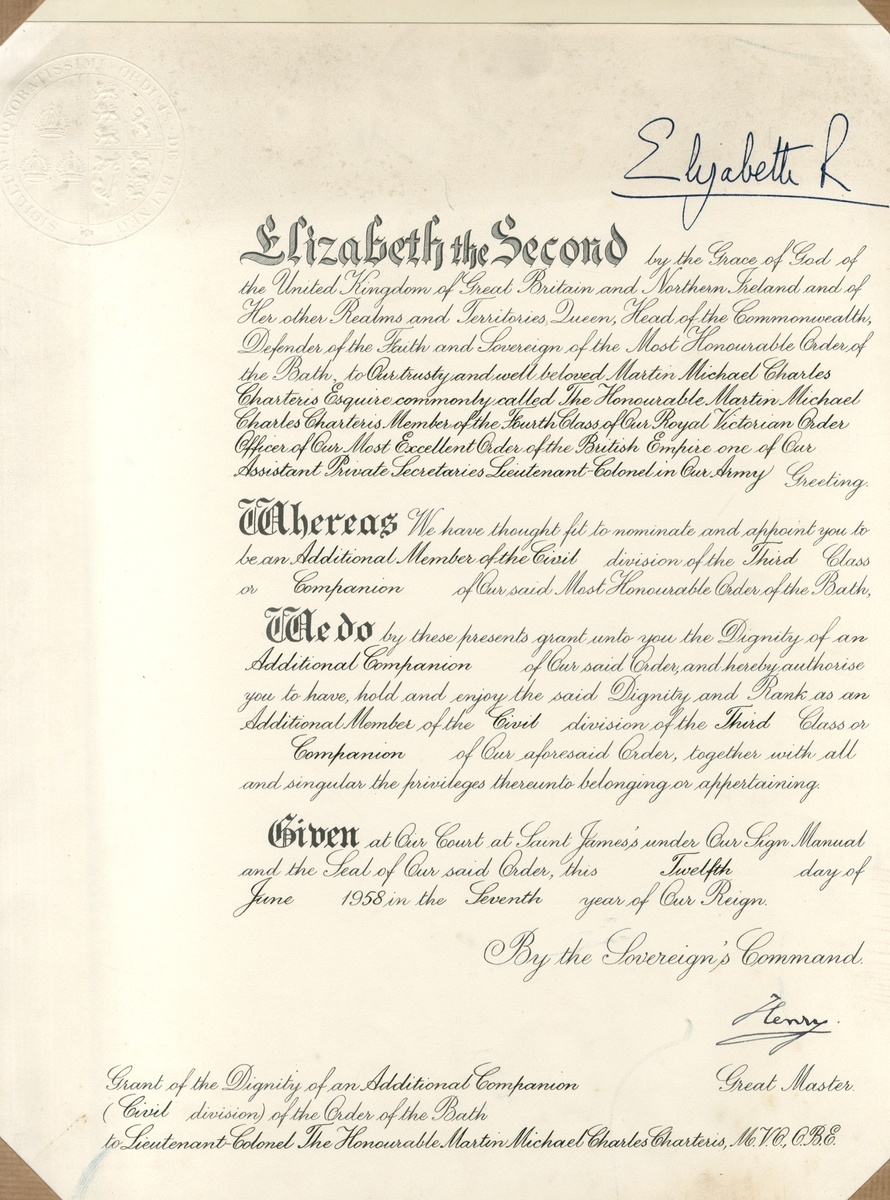 SIGILLUM HONORATISSIMI ORDINIS DE BALNEO
Elizabeth R
Elizabeth the Second by the Grace of God of
the United Kingdom of Great Britain and Northern Ireland and of
Her other Realms and Territories, Queen, Head of the Commonwealth,
Defender of the Faith and Sovereign of the Most Honourable Order of
the Bath, to Our trusty and well beloved Martin Michael Charles
Charteris Esquire commonly called The Honourable Martin Michael
Charles Charteris Member of the Fourth Class of Our Royal Victorian Order
Officer of Our Most Excellent Order of the British Empire one of Our
Assistant Private Secretaries Lieutenant-Colonel in Our Army Greeting.
Whereas We have thought fit to nominate and appoint you to
be an Additional Member of the Civil division of the Third Class
or Companion of Our said Most Honourable Order of the Bath,
We do by these presents grant unto you the Dignity of an
Additional Companion of Our said Order, and hereby authorise
you to have, hold and enjoy the said Dignity and Rank as an
Additional Member of the Civil division of the Third Class or
Companion of Our aforesaid Order, together with all
and singular the privileges thereunto belonging or appertaining.
Given at Our Court at Saint James's under Our Sign Manual
and the Seal of Our said Order, this Twelfth day of
June 1958 in the Seventh year of Our Reign.
By the Sovereign's Command.
Henry.
Great Master.
Grant of the Dignity of an Additional Companion
(Civil division) of the Order of the Bath
to Lieutenant-Colonel The Honourable Martin Michael Charles Charteris, M.V.O., O.B.E.